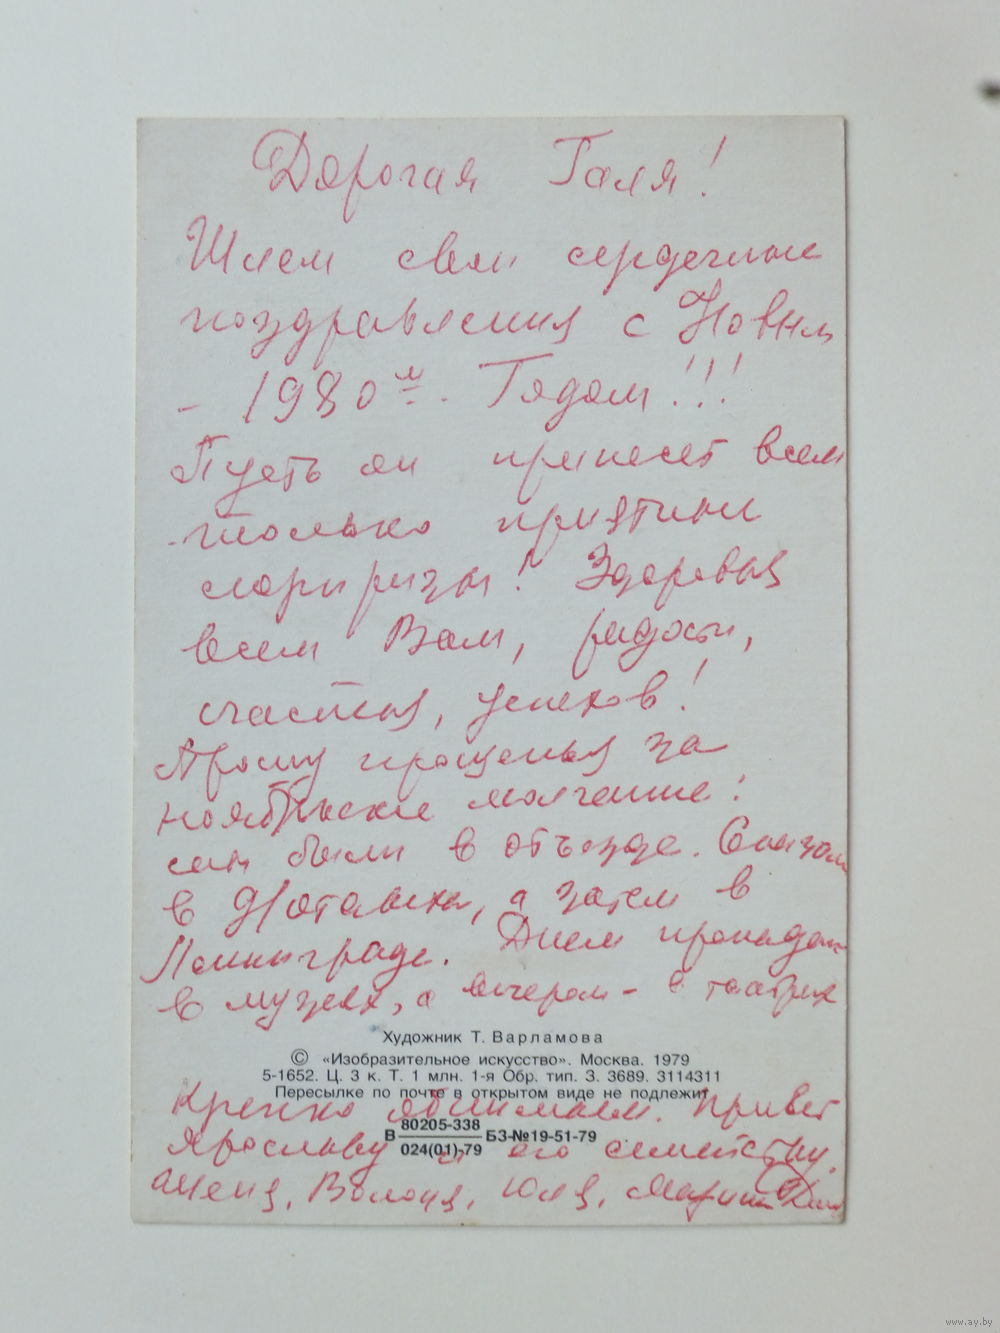 Дорогая Галя!
Шлем свои сердечные
поздравления с Новым
- 1980м. Годом!!!
Пусть он принесет всем
только приятные
сюрпризы! Здоровья
всем Вам, радости,
счастья, успехов!
Прошу прощенья за
ноябрьские молчание:
были в отъезде. Сначала
в, а затем в
Ленинграде. Днем пропадали
в музеях, а вечером - в театрах
Художник Т. Варламова
© «Изобразительное искусство». Москва. 1979
5-1652. Ц. 3 к. Т. 1 млн. 1-я Обр. тип. З. 3689. 3114311
Пересылке по почте в открытом виде не подлежит
Крепко обнимаем. Привет
80205-338
В БЗ-№19-51-79
024(01)-79
Ярославу и его семейству.
Володя, Юля,
www.ay.by